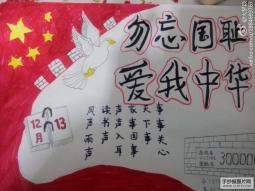 勿忘国耻
爱我中华
12月
13
风声雨声
读书声
声声入耳
家事国事
天下事
事事关心
300000